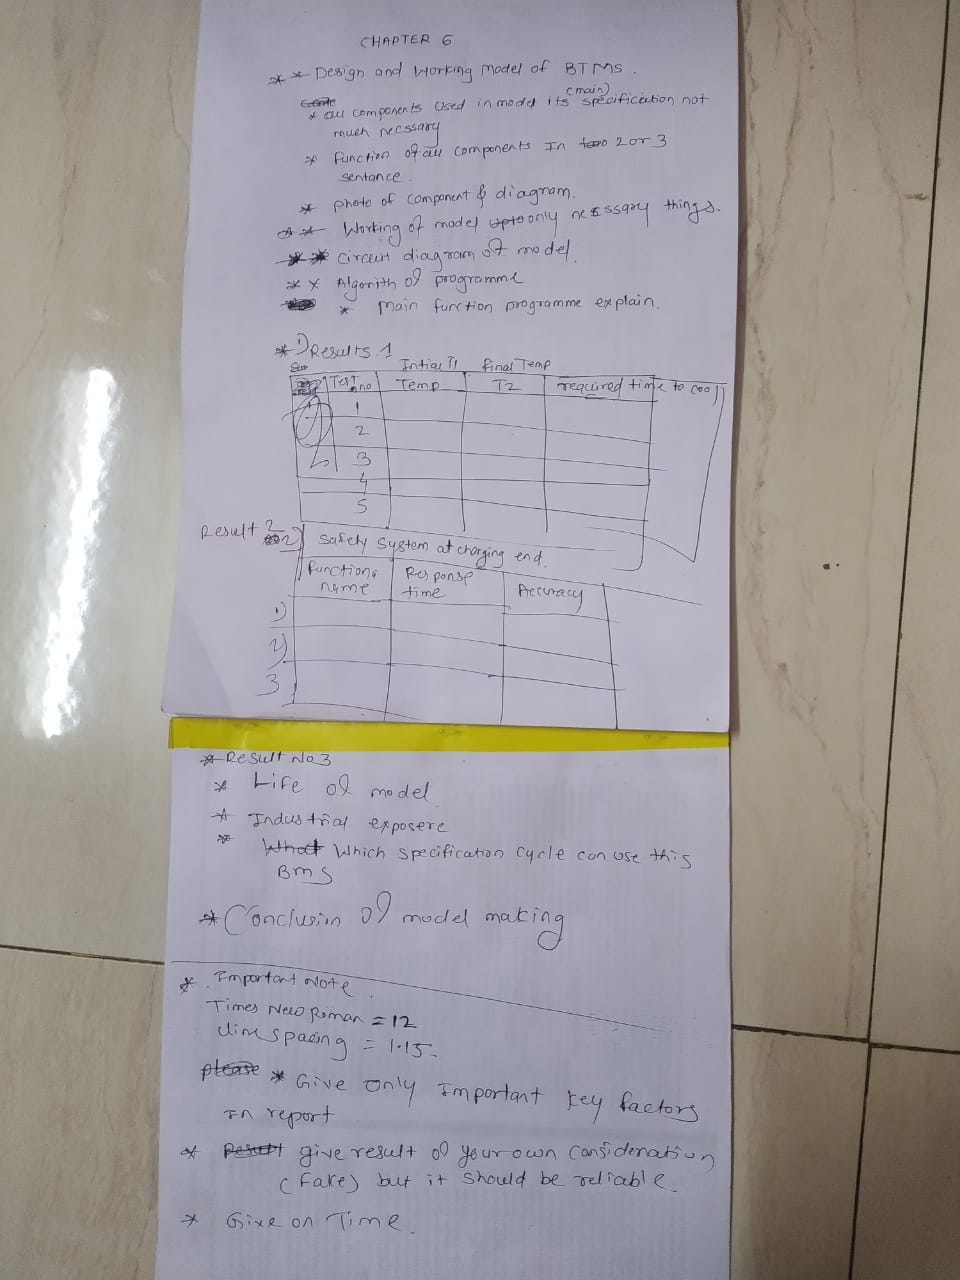 CHAPTER 6
** Design and Working model of BTMS.
* all components Used in model its (main) specification not
much necssary
* function of all components In 2 or 3
sentance.
* photo of component & diagram.
* Working of model upto only necessary things.
** circuit diagram of model.
** Algorith of programme
* main function programme explain.
* 1) Results 1
Intial T1 final Temp
Test no Temp T2 required time to cool
1
2
3
4
5
Result 2
2) Safety system at charging end.
functions Response Accuracy
name time
1)
2)
3
* Result No 3
* Life of model
* Industrial exposere
* What Which specification cycle can use this
Bms
* Conclusion of model making
* Important Note
Times New Roman = 12
Line spacing = 1.15
please * Give only Important key factors
In report
* Result give result of your own Consideration
(fake) but it should be reliable
* Give on Time.